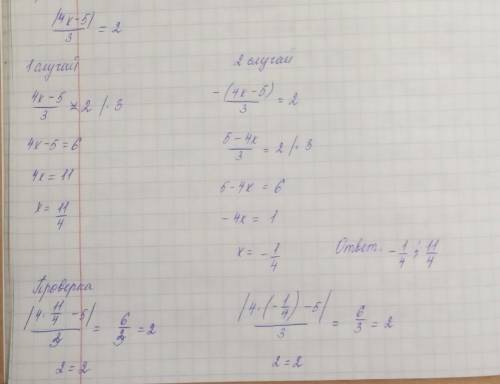 |4x-5|/3 = 2
1 случай
(4x-5)/3 = 2 /· 3
4x-5 = 6
4x = 11
x = 11/4
2 случай
-(4x-5)/3 = 2
(5-4x)/3 = 2 /· 3
5-4x = 6
-4x = 1
x = -1/4
Ответ: -1/4 ; 11/4
Проверка
|4 · 11/4 - 5|/3 = 6/3 = 2
2 = 2
|4 · (-1/4) - 5|/3 = 6/3 = 2
2 = 2